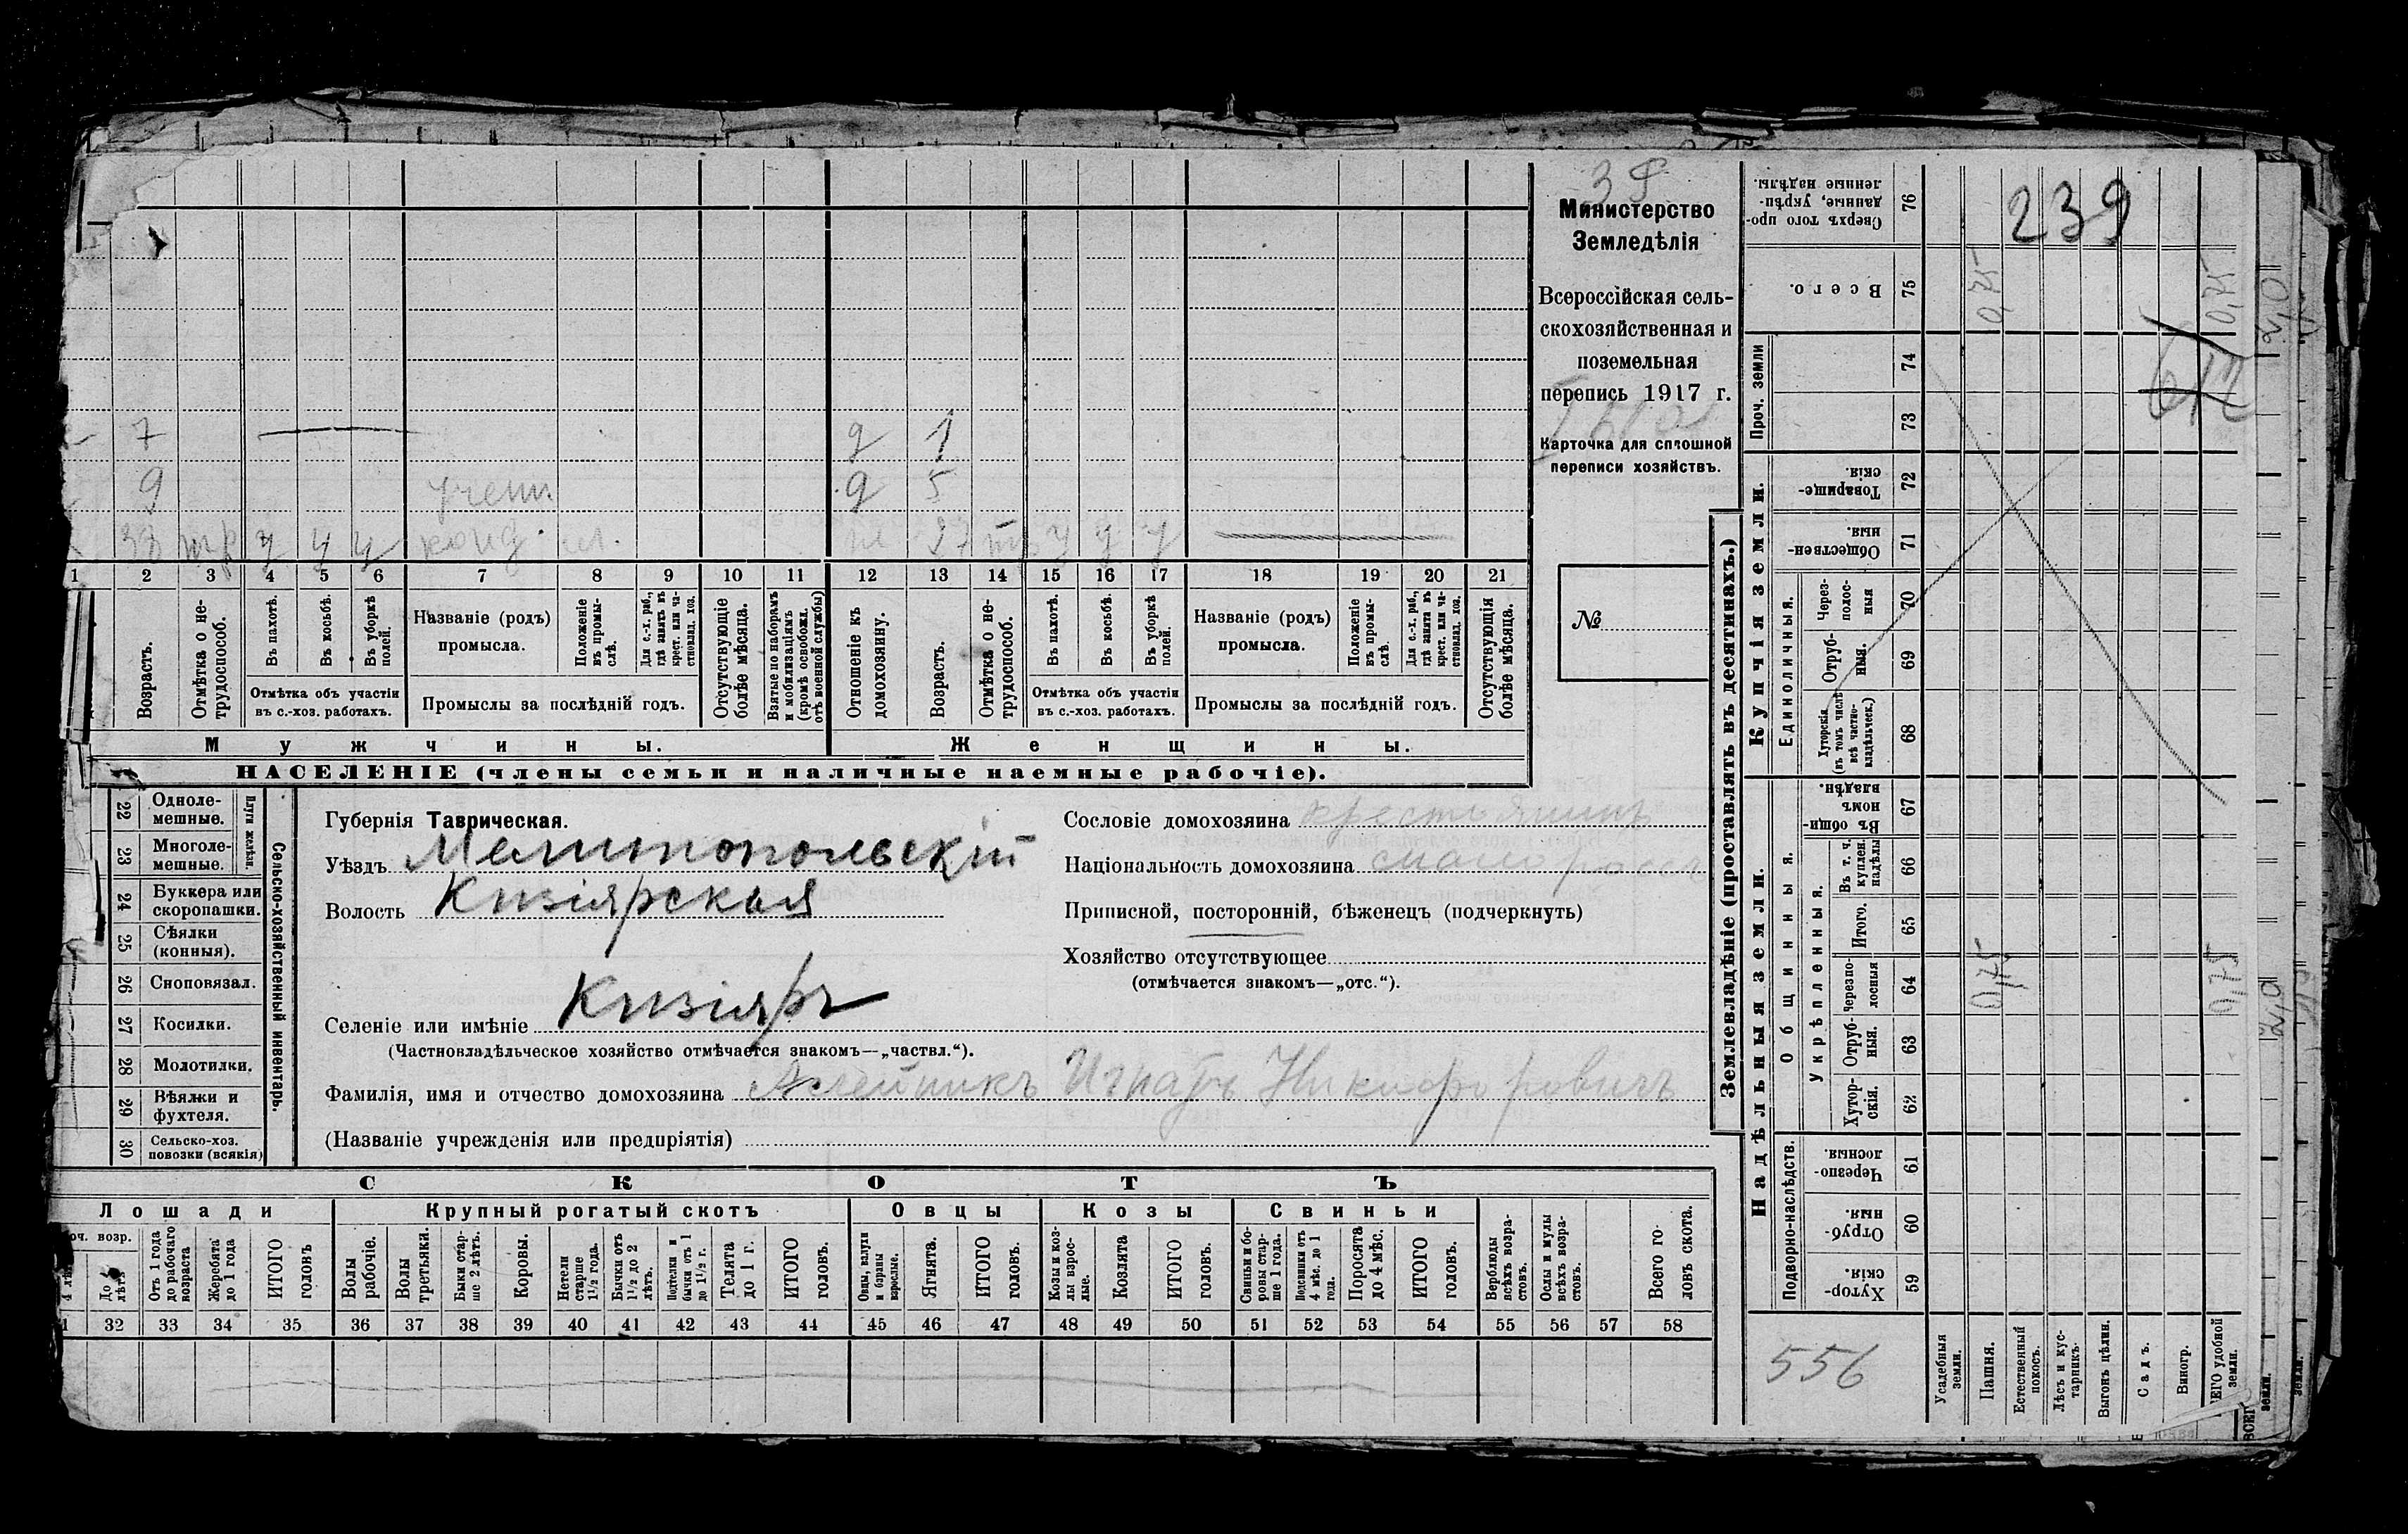 Министерство
Земледѣлія
Всероссійская сель-
скохозяйственная и
поземельная
перепись 1917 г.
Карточка для сплошной
переписи хозяйствъ.
№
239
7
9
учен.
д 1
д 5
1 2 3 4 5 6 7 8 9 10 11 12 13 14 15 16 17 18 19 20 21
Возрастъ.
Отмѣтка о не-
трудоспособ.
Въ пахотѣ.
Въ косьбѣ.
Въ уборкѣ
полей.
Отмѣтка объ участіи
въ с.-хоз. работахъ.
Названіе (родъ)
промысла.
Положеніе
въ промы-
слѣ.
Для с.-х. раб.,
гдѣ занятъ въ
крест. или ча-
стновлад. хоз.
Промыслы за послѣдній годъ.
Отсутствующіе
болѣе мѣсяца.
Взятые по наборамъ
и мобилизаціямъ
(кромѣ освобожд.
отъ военной службы)
Отношеніе къ
домохозяину.
Возрастъ.
Отмѣтка о не-
трудоспособ.
Въ пахотѣ.
Въ косьбѣ.
Въ уборкѣ
полей.
Отмѣтка объ участіи
въ с.-хоз. работахъ.
Названіе (родъ)
промысла.
Положеніе
въ промы-
слѣ.
Для с.-х. раб.,
гдѣ занята въ
крест. или ча-
стновлад. хоз.
Промыслы за послѣдній годъ.
Отсутствующія
болѣе мѣсяца.
Мужчины.
Женщины.
НАСЕЛЕНІЕ (члены семьи и наличные наемные рабочіе).
22 Одноле-
мешные.
23 Многоле-
мешные.
Плуги желѣзн.
24 Буккера или
скоропашки.
25 Сѣялки
(конныя).
26 Сноповязал.
27 Косилки.
28 Молотилки.
29 Вѣялки и
фухтеля.
30 Сельско-хоз.
повозки (всякія)
Сельско-хозяйственный инвентарь.
Губернія Таврическая.
Уѣздъ Мелитопольскій
Волость Кизіярская
Селеніе или имѣніе Кизіяръ
(Частновладѣльческое хозяйство отмѣчается знакомъ—„частвл.“).
Фамилія, имя и отчество домохозяина Алейникъ Игнатъ Никифоровичъ
(Названіе учрежденія или предпріятія)
Сословіе домохозяина крестьянинъ
Національность домохозяина малороссъ
Приписной, посторонній, бѣженецъ (подчеркнуть)
Хозяйство отсутствующее
(отмѣчается знакомъ—„отс.“).
СКОТЪ
Лошади
Крупный рогатый скотъ
Овцы
Козы
Свиньи
Отъ 1 года
до рабочаго
возраста
Жеребята
до 1 года
ИТОГО
головъ
Волы
рабочіе.
Волы
третьяки.
Быки стар-
ше 2 лѣтъ.
Коровы.
Нетели
старше
1½ года.
Бычки отъ
1½ до 2
лѣтъ.
Подтелки и
бычки отъ 1
до 1½ г.
Телята
до 1 г.
ИТОГО
головъ.
Овцы, валухи
и бараны
взрослые.
Ягнята.
ИТОГО
головъ.
Козы и коз-
лы взрос-
лые.
Козлята
ИТОГО
головъ.
Свиньи и бо-
ровы стар-
ше 1 года.
Подсвинки отъ
4 мѣс. до 1
года.
Поросята
до 4 мѣс.
ИТОГО
головъ.
Верблюды
всѣхъ возра-
стовъ.
Ослы и мулы
всѣхъ возра-
стовъ.
Всего го-
ловъ скота.
32 33 34 35 36 37 38 39 40 41 42 43 44 45 46 47 48 49 50 51 52 53 54 55 56 57 58
Землевладѣніе (проставлять въ десятинахъ.)
Сверхъ того про-
данные, укрѣп-
ленные надѣлы.
76
Всего.
75
0,75
0,75
Проч. земли
74
73
Купчія земли.
Товарище-
скія.
72
Обществен-
ныя.
71
Единоличныя.
Через-
полос-
ныя
70
Отруб-
ныя.
69
Хуторскія
(въ томъ числѣ
всѣ частно-
владѣльческ.)
68
Надѣльныя земли.
Общинныя.
Въ общи-
номъ
владѣн.
67
Укрѣпленныя.
Въ т. ч.
куплен.
надѣлы
66
Итого.
65
Черезпо-
лосныя
64
0,75
0,75
Отруб-
ныя.
63
Хутор-
скія.
62
Подворно-наслѣдств.
Черезпо-
лосныя.
61
Отруб-
ныя.
60
Хутор-
скія.
59
556
Усадебныя
земли.
Пашня.
Естественный
покосъ.
Лѣсъ и кус-
тарникъ.
Выгонъ цѣлин.
Садъ.
Виногр.
удобной
земли.